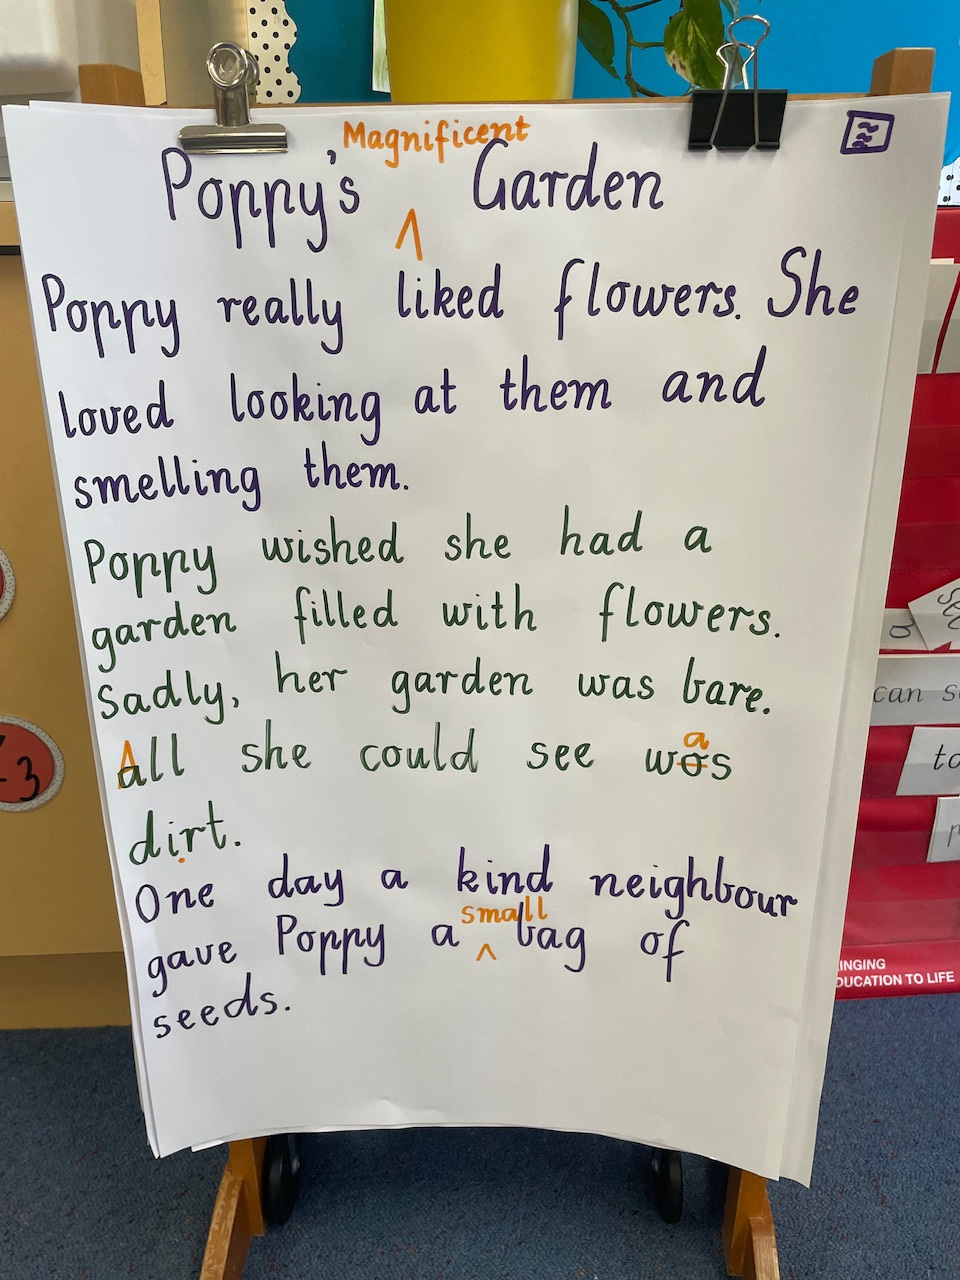 Magnificent
Poppy's ^ Garden
Poppy really liked flowers. She
loved looking at them and
smelling them.
Poppy wished she had a
garden filled with flowers.
Sadly, her garden was bare.
All she could see was
dirt.
One day a kind neighbour
small
gave Poppy a ^ bag of
seeds.
can
INGING
DUCATION TO LIFE
3